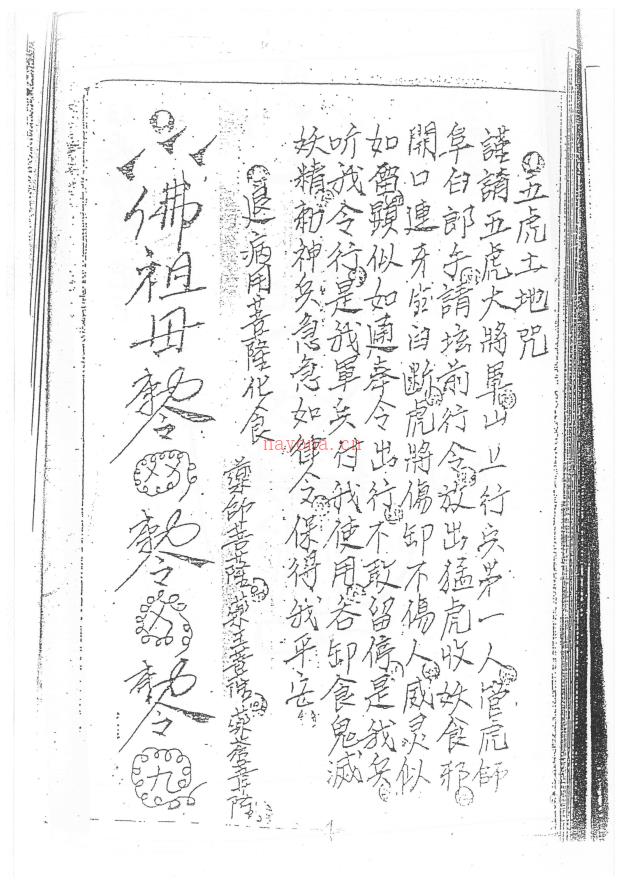 五虎土地咒
謹請五虎大將軍山上行兵第一人管虎師
阜白郎手請坛前行令放出猛虎收妖食邪
開口連牙斷虎將傷卸不傷人威灵似
如雷顕似如通奉令出行不敢留停是我兵
听我令行是我軍兵付我使用吞卸食鬼滅
妖精勅神兵急急如律令保得我平安
退病用菩薩化食
藥師菩薩 藥王菩薩 菩薩
佛祖母勅令 勅令 勅令 九
nayona.cn